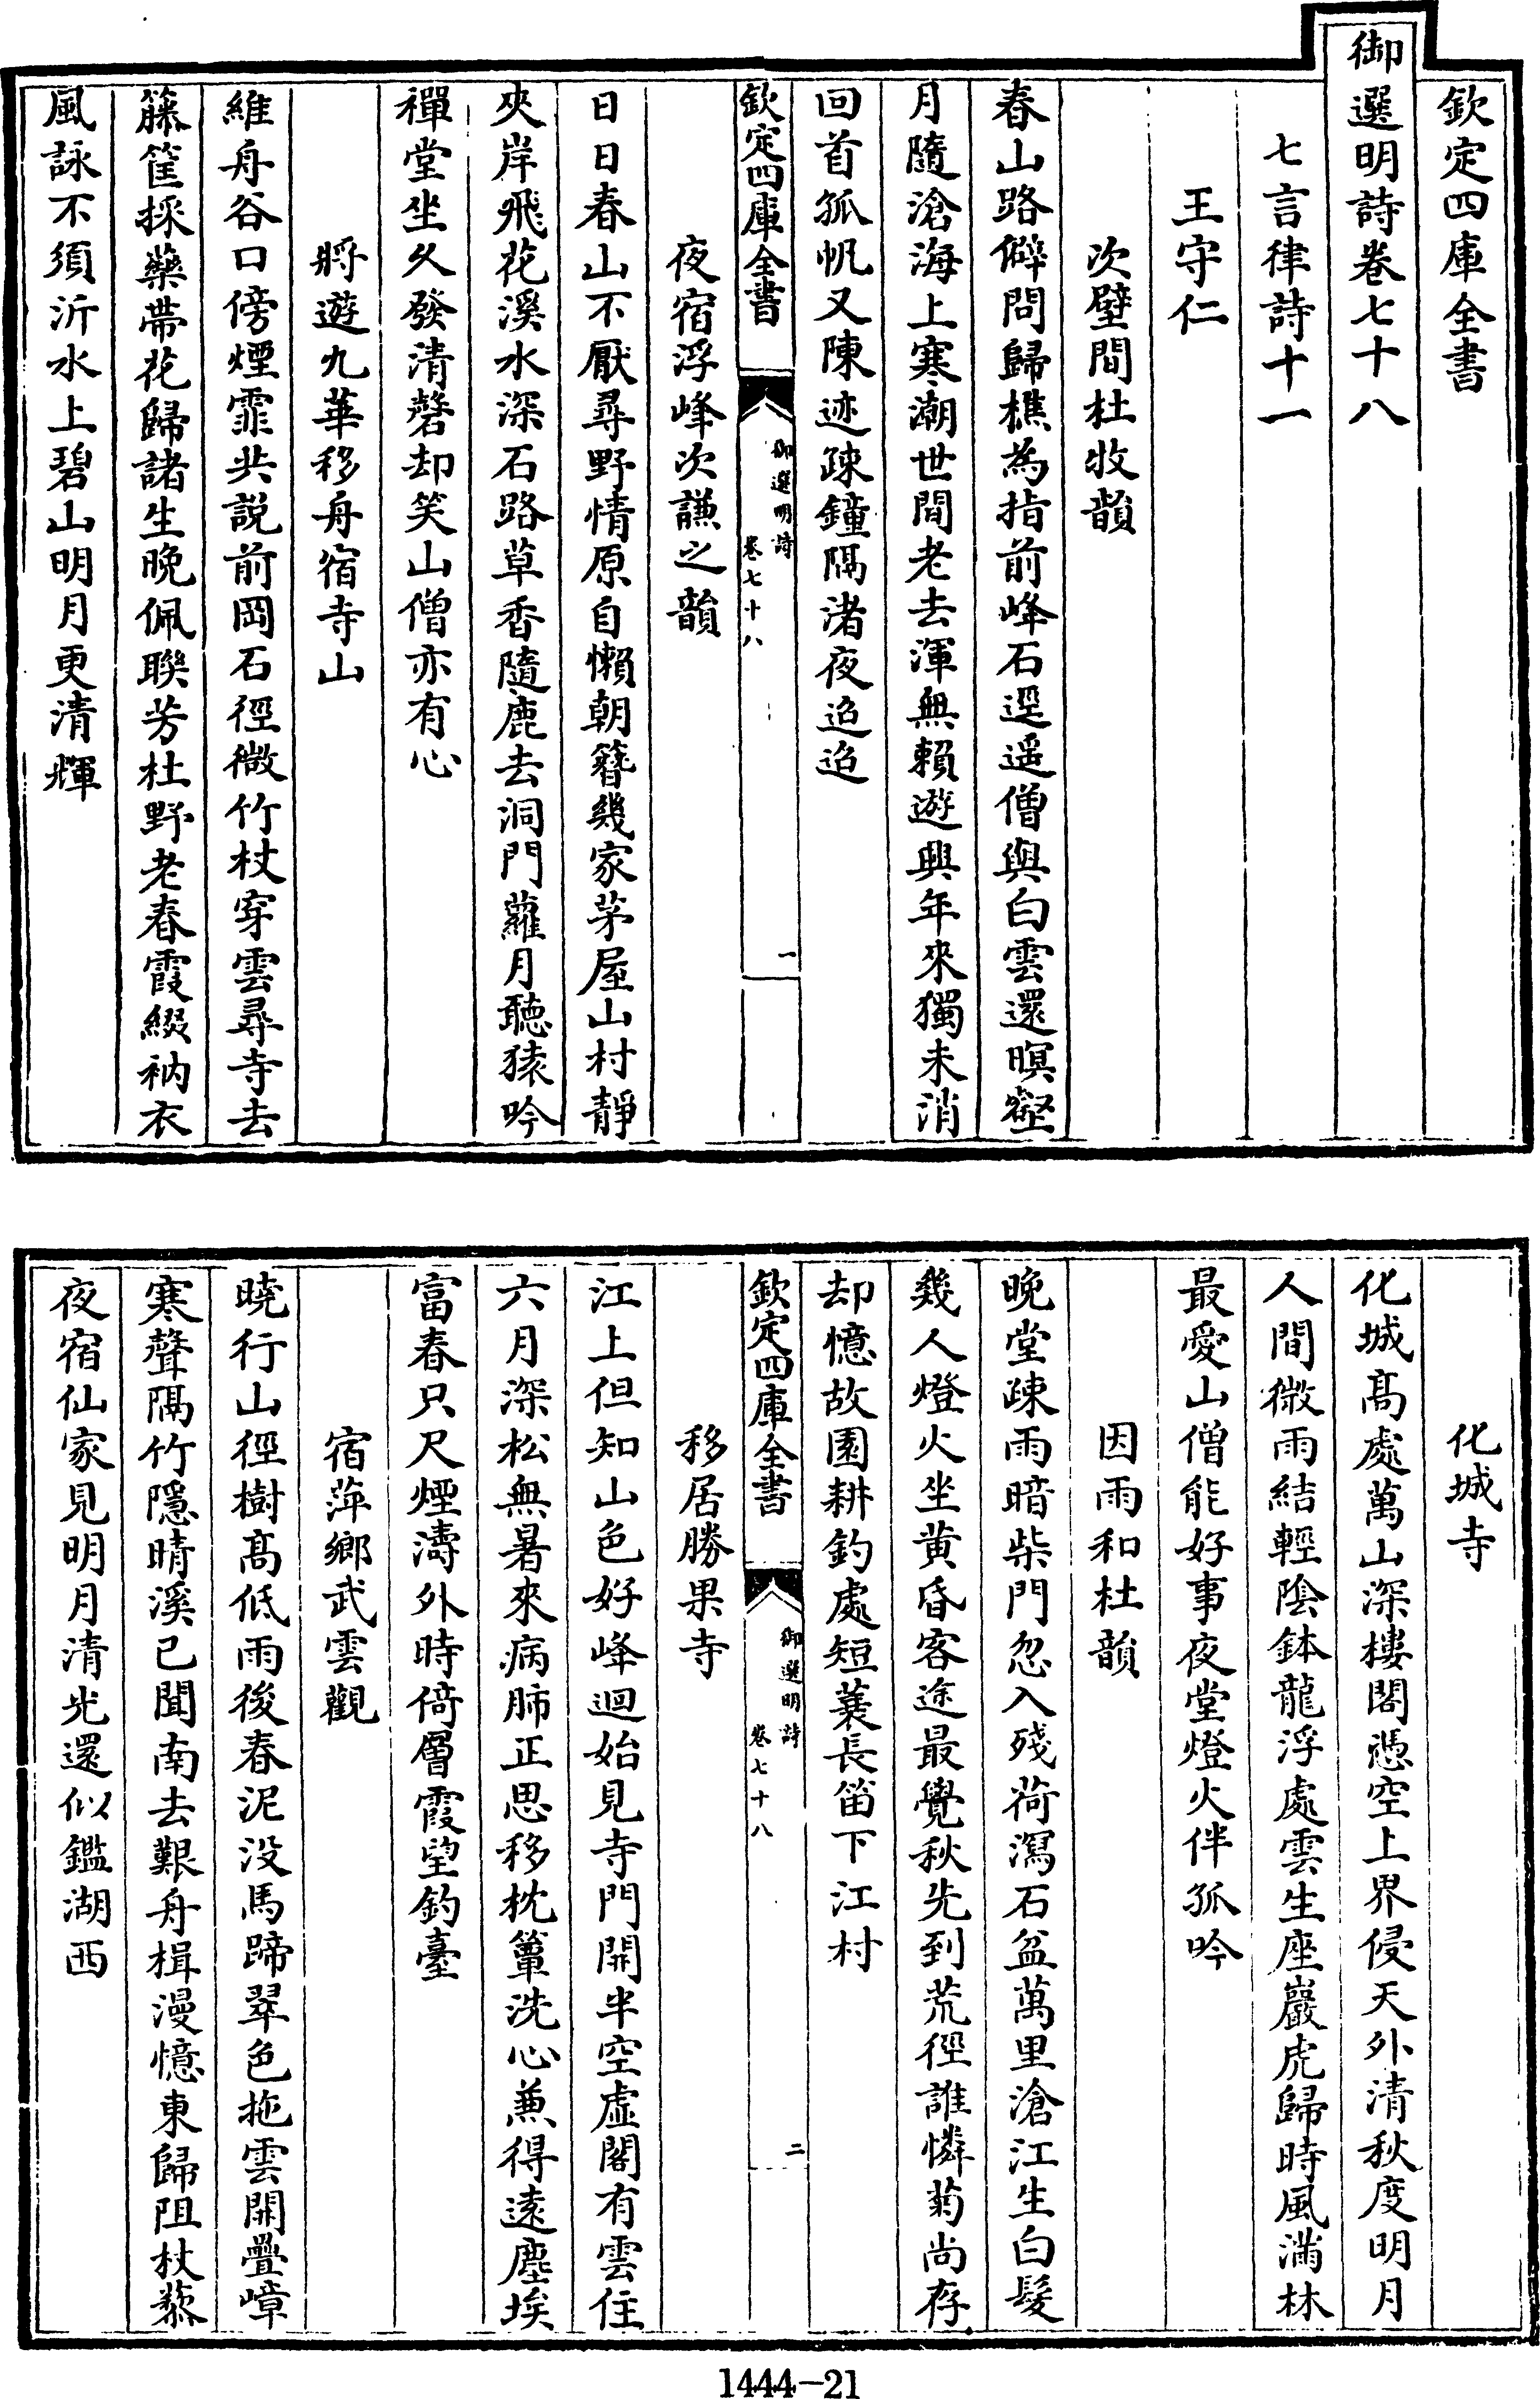 欽定四庫全書
御選明詩卷七十八
七言律詩十一
王守仁
次壁間杜牧韻
春山路僻問歸樵為指前峰石逕遥僧與白雲還暝壑
月隨滄海上寒潮世間老去渾無賴遊興年來獨未消
回首孤帆又陳迹疎鐘隔渚夜迢迢
欽定四庫全書
御選明詩
卷七十八
一
夜宿浮峰次謙之韻
日日春山不厭尋野情原自懶朝簪幾家茅屋山村靜
夾岸飛花溪水深石路草香隨鹿去洞門蘿月聽猿吟
禪堂坐久發清磬却笑山僧亦有心
將遊九華移舟宿寺山
維舟谷口傍煙霏共説前岡石徑微竹杖穿雲尋寺去
籐筐採藥帶花歸諸生晚佩聯芳杜野老春霞綴衲衣
風詠不須沂水上碧山明月更清輝
化城寺
化城髙處萬山深樓閣憑空上界侵天外清秋度明月
人間微雨結輕陰鉢龍浮處雲生座巖虎歸時風滿林
最愛山僧能好事夜堂燈火伴孤吟
因雨和杜韻
晚堂疎雨暗柴門忽入殘荷瀉石盆萬里滄江生白髮
幾人燈火坐黄昏客途最覺秋先到荒徑誰憐菊尚存
却憶故園耕釣處短蓑長笛下江村
欽定四庫全書
御選明詩
卷七十八
二
移居勝果寺
江上但知山色好峰迴始見寺門開半空虛閣有雲住
六月深松無暑來病肺正思移枕簟洗心兼得遠塵埃
富春只尺煙濤外時倚層霞望釣臺
宿萍鄉武雲觀
曉行山徑樹髙低雨後春泥没馬蹄翠色拖雲開疊嶂
寒聲隔竹隱晴溪已聞南去艱舟楫漫憶東歸阻杖藜
夜宿仙家見明月清光還似鑑湖西
1444-21